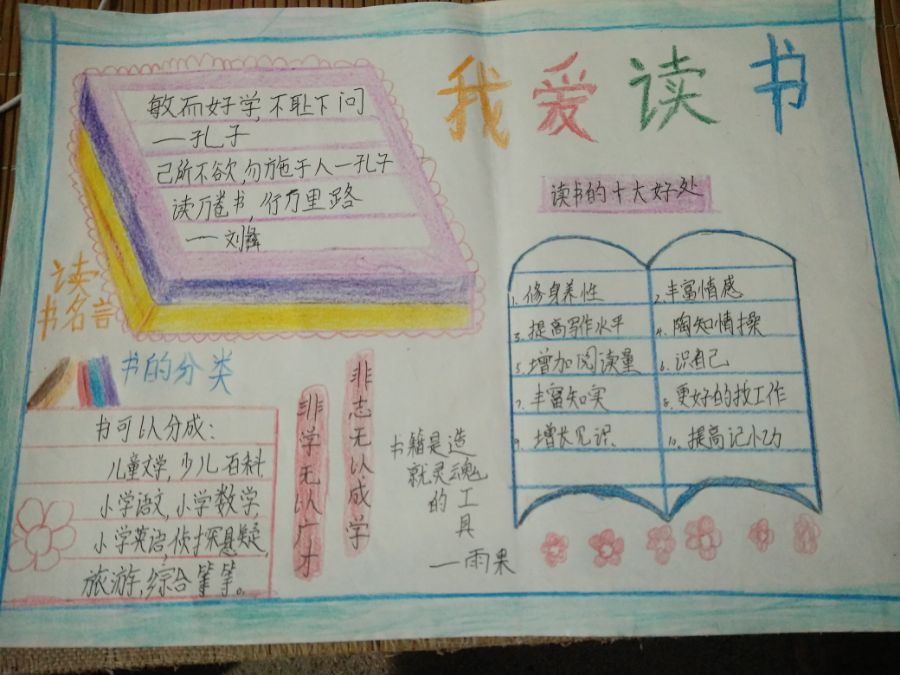 我爱读书
敏而好学,不耻下问
——孔子
己所不欲,勿施于人—孔子
读万卷书,行万里路
——刘彝
读
书名言
读书的十大好处
1.修身养性
2.丰富情感
3.提高写作水平
4.陶知情操
5.增加阅读量
6.识自己
7.丰富知实
8.更好的找工作
9.增长见识.
10.提高记小力
书的分类
书可以分成:
儿童文学,少儿百科
小学语文,小学数学,
小学英语,侦探悬疑,
旅游,综合等等。
非学无以广才
非志无以成学
书籍是造
就灵魂
的工
具
——雨果